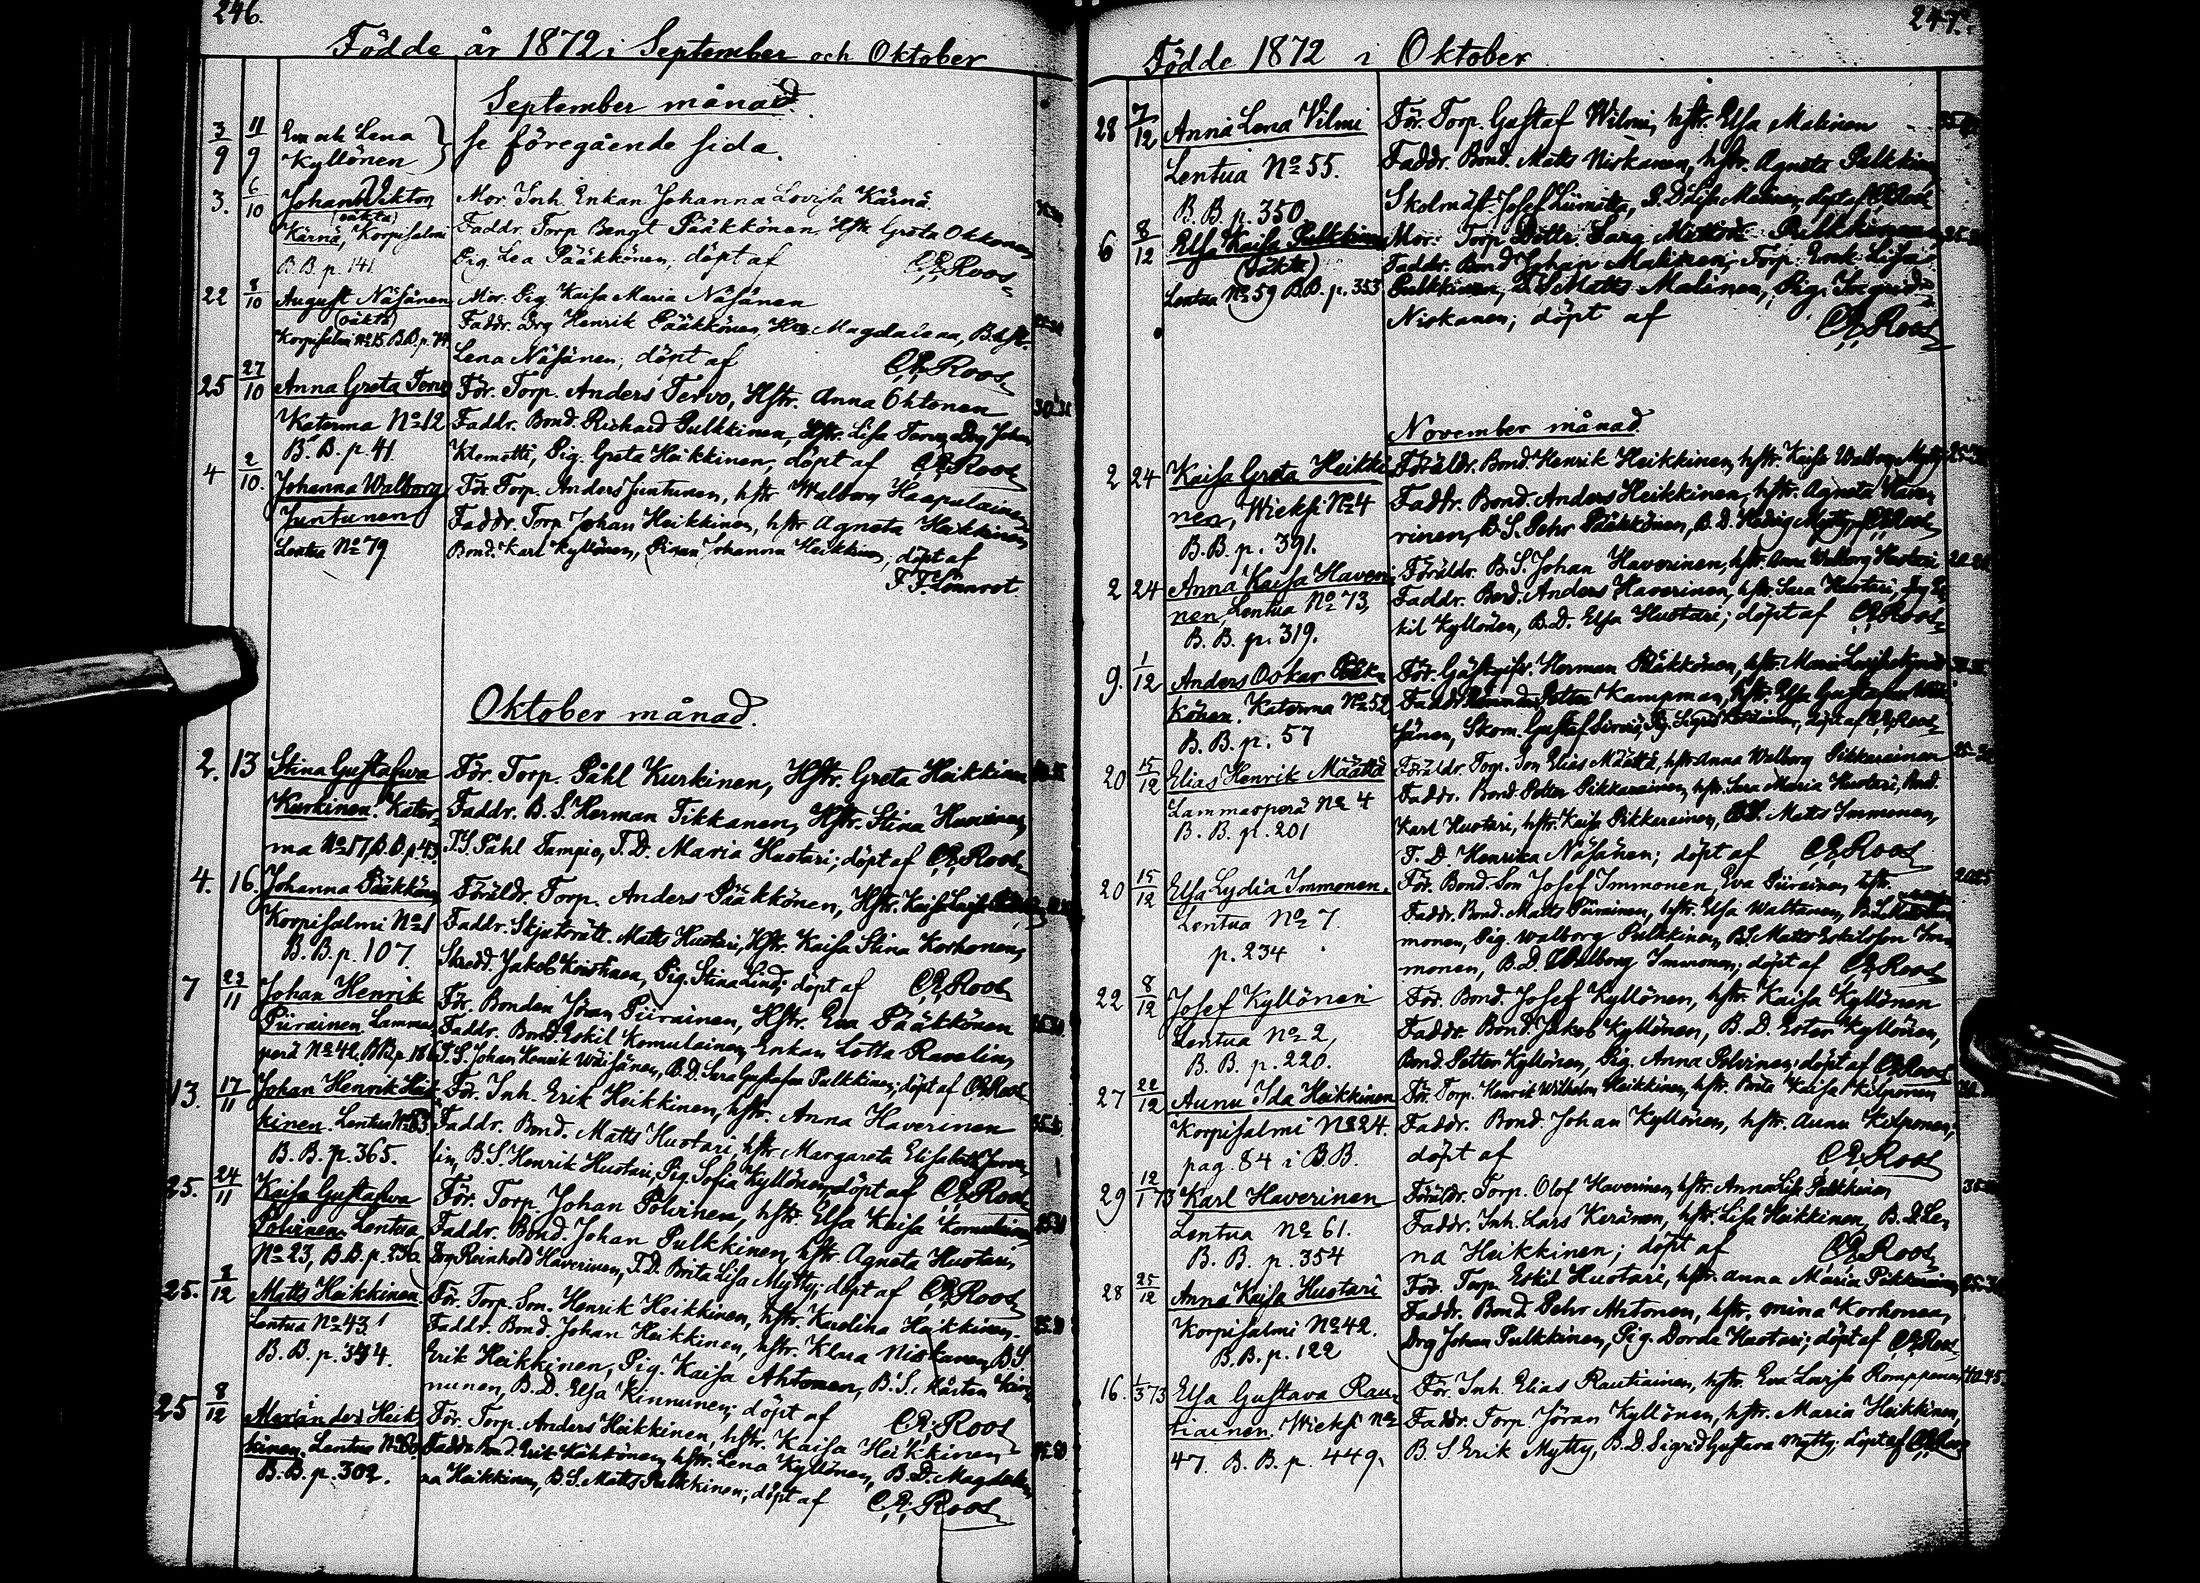 246.
Födde år 1872 i September och Oktober
September månad.
3/9 11/9 Eva och Lena Kyllönen } se föregående sida.
3. 6/10 Johan Viktor
(oäkta)
Kärnä, Korpisalmi
B.B. p. 141
Mor. Inh. Enkan Johanna Lovisa Kärnä.
Faddr. Torp Bengt Pääkkönen, Hstr Greta Okkonen,
Pig. Lea Pääkkönen, döpt af C.E. Roos
22 8/10 August Näsänen
(oäkta)
Korpisalmi No 15 B.B. p. 74
Mor. Pig. Kaisa Maria Näsänen
Faddr. Drg Henrik Pääkkönen, Magdalena,
Lena Näsänen; döpt af C.E. Roos
25 27/10 Anna Greta Tervo
Katerma No 12
B.B. p. 41
För. Torp. Anders Tervo, Hstr. Anna Ohtonen 30.31
Faddr. Bond. Richard Pulkkinen, Hstr. Lisa Tervo, Drg Johan
Klemetti, Pig. Greta Heikkinen, döpt af C.E. Roos
4 2/10. Johanna Walborg
Juntunen
Lentua No 79
För. Torp. Anders Juntunen, hstr Walborg Haapalainen
Faddr. Torp Johan Heikkinen, hstr Agneta Heikkinen
Bond. Karl Kyllönen, Pigan Johanna Heikkinen; döpt af
F. F. Lönnrot
Oktober månad.
2. 13 Stina Gustafva
Kurkinen. Kater-
ma No 17, B.B. p. 43
För. Torp. Påhl Kurkinen, Hstr. Greta Heikkinen
Faddr. B.S. Herman Tikkanen, Hstr. Stina Huovinen,
T.S. Påhl Tampio, T.D. Maria Huotari; döpt af C.E. Roos
4. 16. Johanna Pääkkönen
Korpisalmi No 1
B.B. p. 107.
Föräldr. Torp. Anders Pääkkönen, Hstr. Kaisa Lovisa
Faddr. Skjutsrätt. Matts Huotari, Hstr. Kaisa Stina Korhonen,
Skredd. Jakob Pig. Stina Lind; döpt af C.E. Roos
7 23/11 Johan Henrik
Piirainen Lammas
perä No 42, B.B. p. 186
För. Bonden Jöran Piirainen, Hstr. Eva Pääkkönen
Faddr. Bond. Eskil Komulainen, Enkan Lotta Ravelin,
T.S. Johan Henrik Väisänen, B.D. Sara Gustafva Pulkkinen; döpt af C.E. Roos
13. 17/11 Johan Henrik Heik-
kinen. Lentua No 83
B.B. p. 365.
För. Inh. Erik Heikkinen, hstr. Anna Haverinen
Faddr. Bond. Matts Huotari, hstr Margareta Elisabeth
lin, B.S. Henrik Huotari, Pig. Sofia Kyllönen; döpt af C.E. Roos
25. 24/11 Kaisa Gustafva
Polvinen. Lentua
No 23, B.B. p.
För. Torp. Johan Polvinen, hstr. Elsa Kaisa Komulainen
Faddr. Bond. Johan Pulkkinen, hstr. Agneta Huotari,
Drg Reinhold Haverinen, T.D. Brita Lisa Mytty; döpt af C.E. Roos
25. 8/12 Matts Heikkinen
Lentua No 43
B.B. p. 344.
För. Torp. Son. Henrik Heikkinen, hstr. Karolina Heikkinen.
Faddr. Bond. Johan Heikkinen, hstr. Klara Niskanen, B.S.
Erik Heikkinen, Pig. Kaisa Ahtonen, B.S. Mårten Kin-
nunen, B.D. Elsa Kinnunen; döpt af C.E. Roos
25 8/12 Heik-
kinen. Lentua
B.B. p. 302.
För. Torp. Anders Heikkinen, hstr. Kaisa Heikkinen
Faddr. Bond. Erik Kähkönen, hstr. Lena Kyllönen, B.D. Magdale-
na Heikkinen, B.S. Matts Pulkkinen; döpt af C.E. Roos
247.
Födde 1872 i Oktober
28 7/12 Anna Lena Vilmi
Lentua No 55.
B.B. p. 350.
För. Torp. Gustaf Wilmi, hstr. Elsa Malinen
Faddr. Bond. Matts Niskanen, hstr. Agneta Pulkkinen
Skolmäst. Josef Liimatta, B.D. Lisa Malinen, döpt af C.E. Roos
6 8/12 Elsa Kaisa Pulkkinen
(oäkta)
Lentua No 59 B.B. p. 353
Mor: Torp. Dottr. Sara Pulkkinen
Faddr. Bond Johan Malinen, Torp. Enk. Lisa
Pulkkinen, B.S. Matts Malinen, Pig. Ingrid
Niskanen; döpt af C.E. Roos
November månad.
2 24 Kaisa Greta Heikki-
nen, Wieksi No 4
B.B. p. 391.
Föräldr. Bond. Henrik Heikkinen, hstr. Kaisa Walborg Mytty
Faddr. Bond. Anders Heikkinen, hstr. Agneta Have-
rinen, B.S. Pehr Pääkkönen, B.D. Hedvig Mytty, C.E. Roos
2 24 Anna Kaisa Haveri-
nen, Lentua No 73,
B.B. p. 319.
Föräldr. B.S. Johan Haverinen, hstr. Anna Walborg Huotari
Faddr. Bond. Anders Haverinen, hstr. Sara Huotari, Drg Es-
kil Kyllönen, B.D. Elsa Huotari; döpt af C.E. Roos
9. 1/12 Anders Oskar Pääk-
könen. Katerma No 52
B.B. p. 57
För. Gästgifv. Herman Pääkkönen, hstr. Maria Lovisa
Faddr. Petter Kampman, hstr. Elsa Gustafva Väi-
sänen, Skom. Gustaf Pig. Sigrid döpt af C.E. Roos
20 15/12 Elias Henrik Määttä
Lammasperä No 4
B.B. p. 201
Föräldr. Torp. Son Elias Määttä, hstr Anna Walborg Pikkarainen
Faddr. Bond. Petter Pikkarainen, hstr. Sara Maria Huotari, Bond.
Karl Huotari, hstr. Kaisa Pikkarainen, B.S. Matts Immonen,
T.D. Henrika Näsänen; döpt af C.E. Roos
20 15/12 Elsa Lydia Immonen.
Lentua No 7.
p. 234
För. Bond. Son Josef Immonen, Eva Piirainen, hstr. 20.25
Faddr. Bond. Matts Piirainen, hstr. Elsa Waltanen,
monen, Pig. Walborg Pulkkinen, B.S. Matts Eskilsson Im-
monen, B.D. Walborg Immonen; döpt af C.E. Roos
22 8/12 Josef Kyllönen
Lentua No 2,
B.B. p. 220.
För. Bond. Josef Kyllönen, hstr. Kaisa Kyllönen
Faddr. Bond Jakob Kyllönen, B.D. Ester Kyllönen,
Bond. Petter Kyllönen, Pig. Anna Polvinen; döpt af C.E. Roos
27 22/12 Aunu Ida Heikkinen
Korpisalmi No 24.
pag. 84 i B.B.
För. Torp. Henrik Wilhelm Heikkinen, hstr. Brita Kaisa Kilponen
Faddr. Bond. Johan Kyllönen, hstr. Aunu Kilponen;
döpt af C.E. Roos
29 12/1 73 Karl Haverinen
Lentua No 61.
B.B. p. 354
Föräldr. Torp. Olof Haverinen, hstr. Anna Lisa Pulkkinen
Faddr. Inh. Lars Keränen, hstr. Lisa Heikkinen, B.D. Le-
na Heikkinen; döpt af C.E. Roos
28 25/12 Anna Kaisa Huotari
Korpisalmi No 42.
B.B. p. 122
För. Torp. Eskil Huotari, hstr. Anna Maria Pikkarainen
Faddr. Bond. Pehr Ahtonen, hstr. Mina Korhonen,
Drg Johan Pulkkinen, Pig. Dorda Huotari; döpt af C.E. Roos
16. 1/3 73 Elsa Gustava Rau-
tiainen. Wieksi No
47. B.B. p. 449.
För. Inh. Elias Rautiainen, hstr. Eva Lovisa Romppanen 40.45
Faddr. Torp Jöran Kyllönen, hstr. Maria Heikkinen,
B.S. Erik Mytty, B.D. Sigrid Gustava Mytty; döpt af C.E. Roos